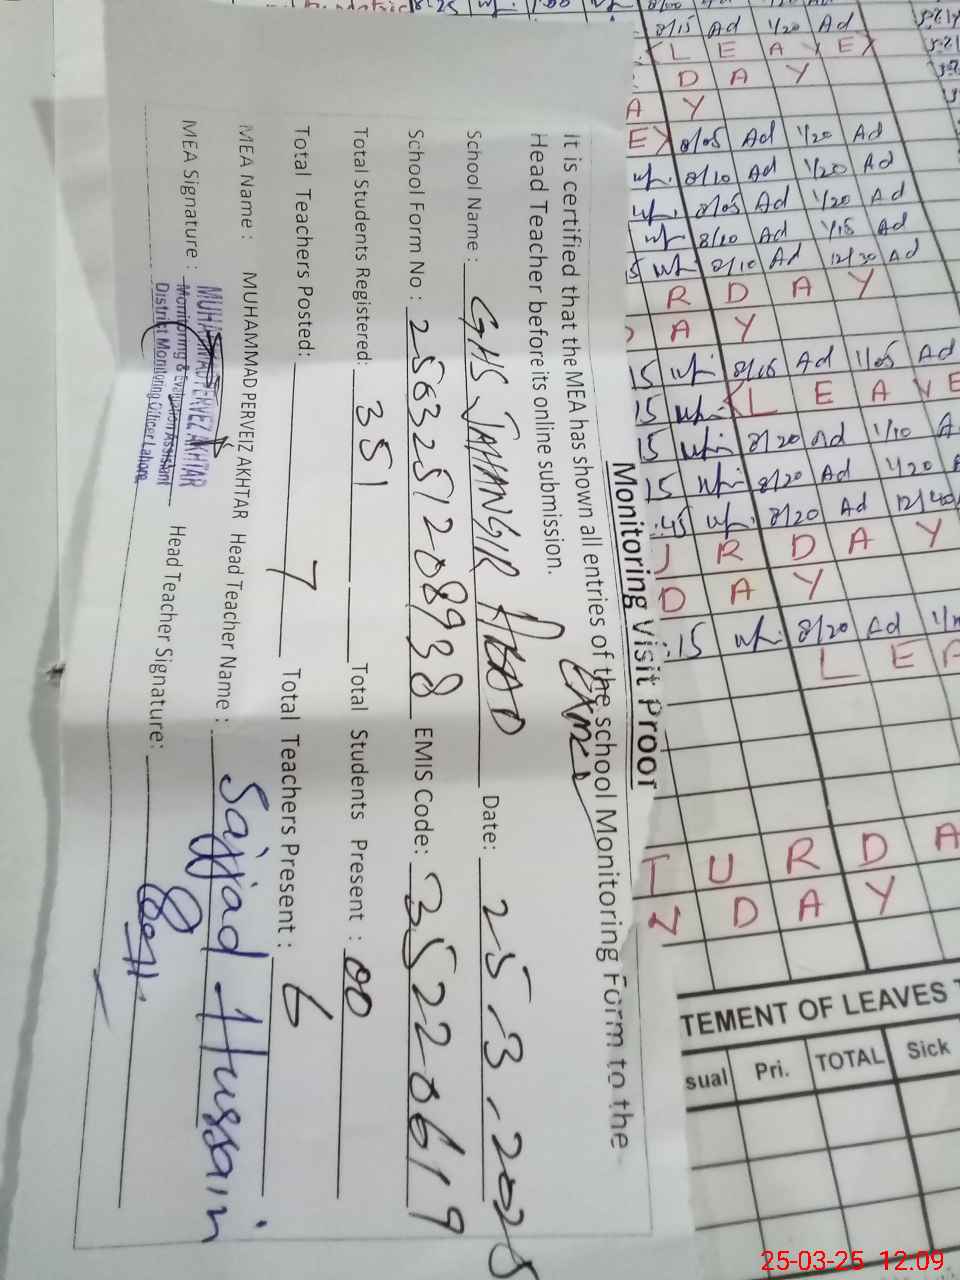 Monitoring Visit Proof
It is certified that the MEA has shown all entries of the school Monitoring Form to the
Head Teacher before its online submission.
School Name : GHS JAHANGIR ABAD Date: 25-3-2025
School Form No : 2563251208938 EMIS Code: 35220619
Total Students Registered: 351 Total Students Present : 00
Total Teachers Posted: 7 Total Teachers Present : 6
MEA Name : MUHAMMAD PERVEIZ AKHTAR Head Teacher Name : Sajjad Hussain
MEA Signature : Head Teacher Signature:
MUHAMMAD PERVEZ AKHTAR
Monitoring & Evaluation Assistant
District Monitoring Officer Lahore
8/15 Ad 1/20 Ad
L E A V E
D A Y
A Y
E 8/05 Ad 1/20 Ad
8/10 Ad 1/20 Ad
8/05 Ad 1/20 Ad
8/20 Ad 1/15 Ad
8/10 Ad 12/30 Ad
R D A Y
A Y
15 Ad 1/05 Ad
15 L E A V E
15 8/20 Ad 1/10 A
15 8/20 Ad 1/20
:45 8/20 Ad 12/40
R D A Y
D A Y
15 8/20 Ad
L E A
T U R D A
N D A Y
TEMENT OF LEAVES T
sual Pri. TOTAL Sick
25-03-25 12.09